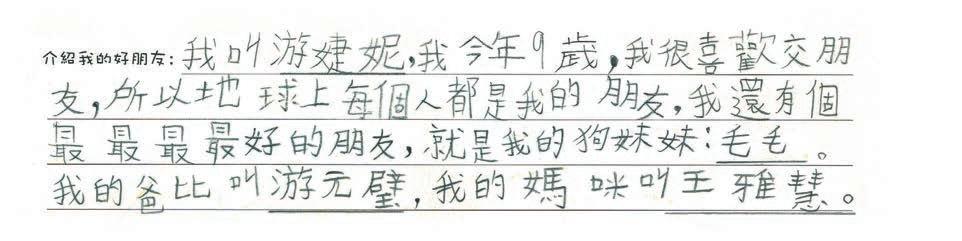 介紹我的好朋友:我叫游婕妮,我今年9歲,我很喜歡交朋
友,所以地球上每個人都是我的朋友,我還有個
最最最最好的朋友,就是我的狗妹妹:毛毛。
我的爸比叫游元璧,我的媽咪叫王雅慧。